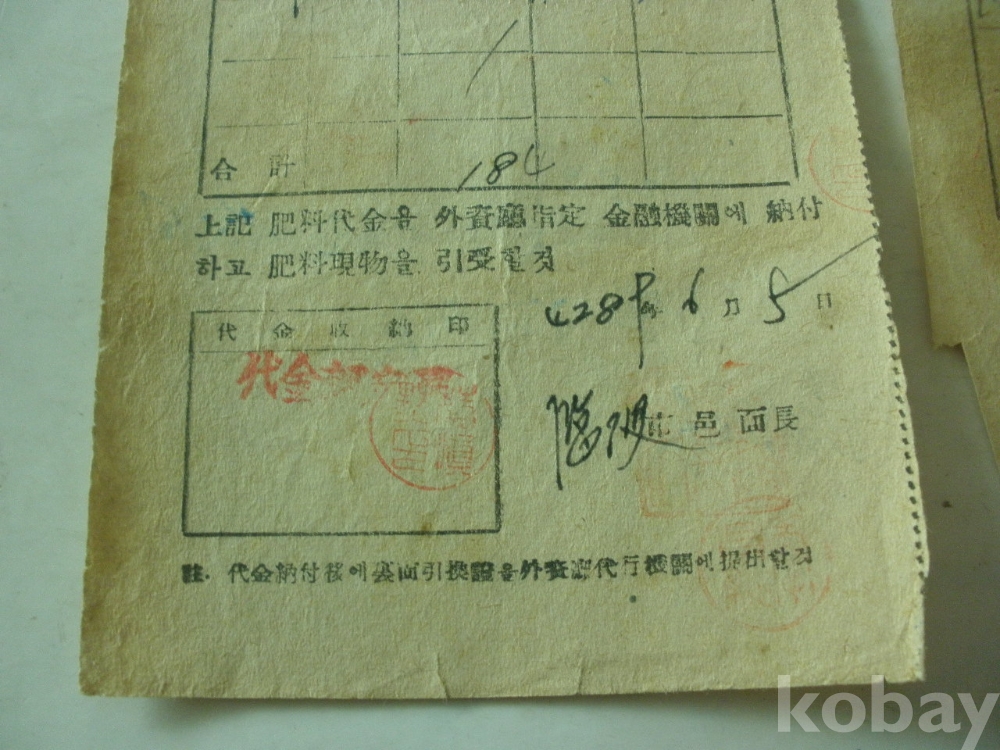 合 計 184
上記 肥料代金을 外資廳指定 金融機關에 納付
하고 肥料現物을 引受할것
428 年 6 月 5 日
代 金 收 納 印
代金
市 邑 面長
註. 代金納付後에 裏面引換證을 外資廳代行機關에 提出할것
kobay